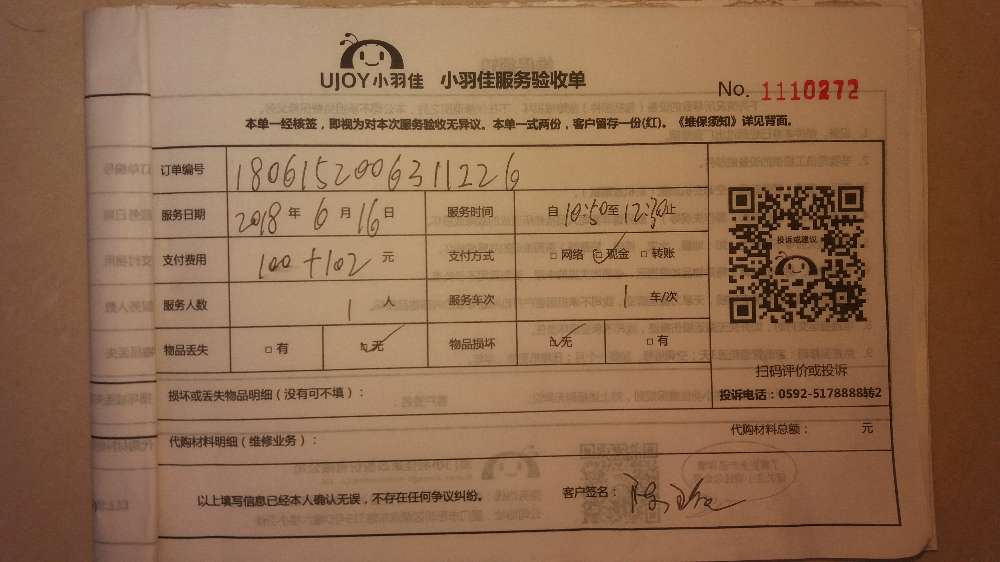 UJOY小羽佳 小羽佳服务验收单
No. 1110272
本单一经核签，即视为对本次服务验收无异议。本单一式两份，客户留存一份(红)。《维保须知》详见背面。
订单编号 1806152006311226
服务日期 2018 年 6 月 16 日 服务时间 自 10:50 至 12:30 止
支付费用 100+102 元 支付方式 □ 网络 □ 现金 □ 转账
投诉或建议
服务人数 1 人 服务车次 1 车/次
物品丢失 □ 有 □ 无 物品损坏 □ 无 □ 有
扫码评价或投诉
损坏或丢失物品明细（没有可不填）： 投诉电话：0592-5178888转2
代购材料明细（维修业务）： 代购材料总额： 元
以上填写信息已经本人确认无误，不存在任何争议纠纷。 客户签名：